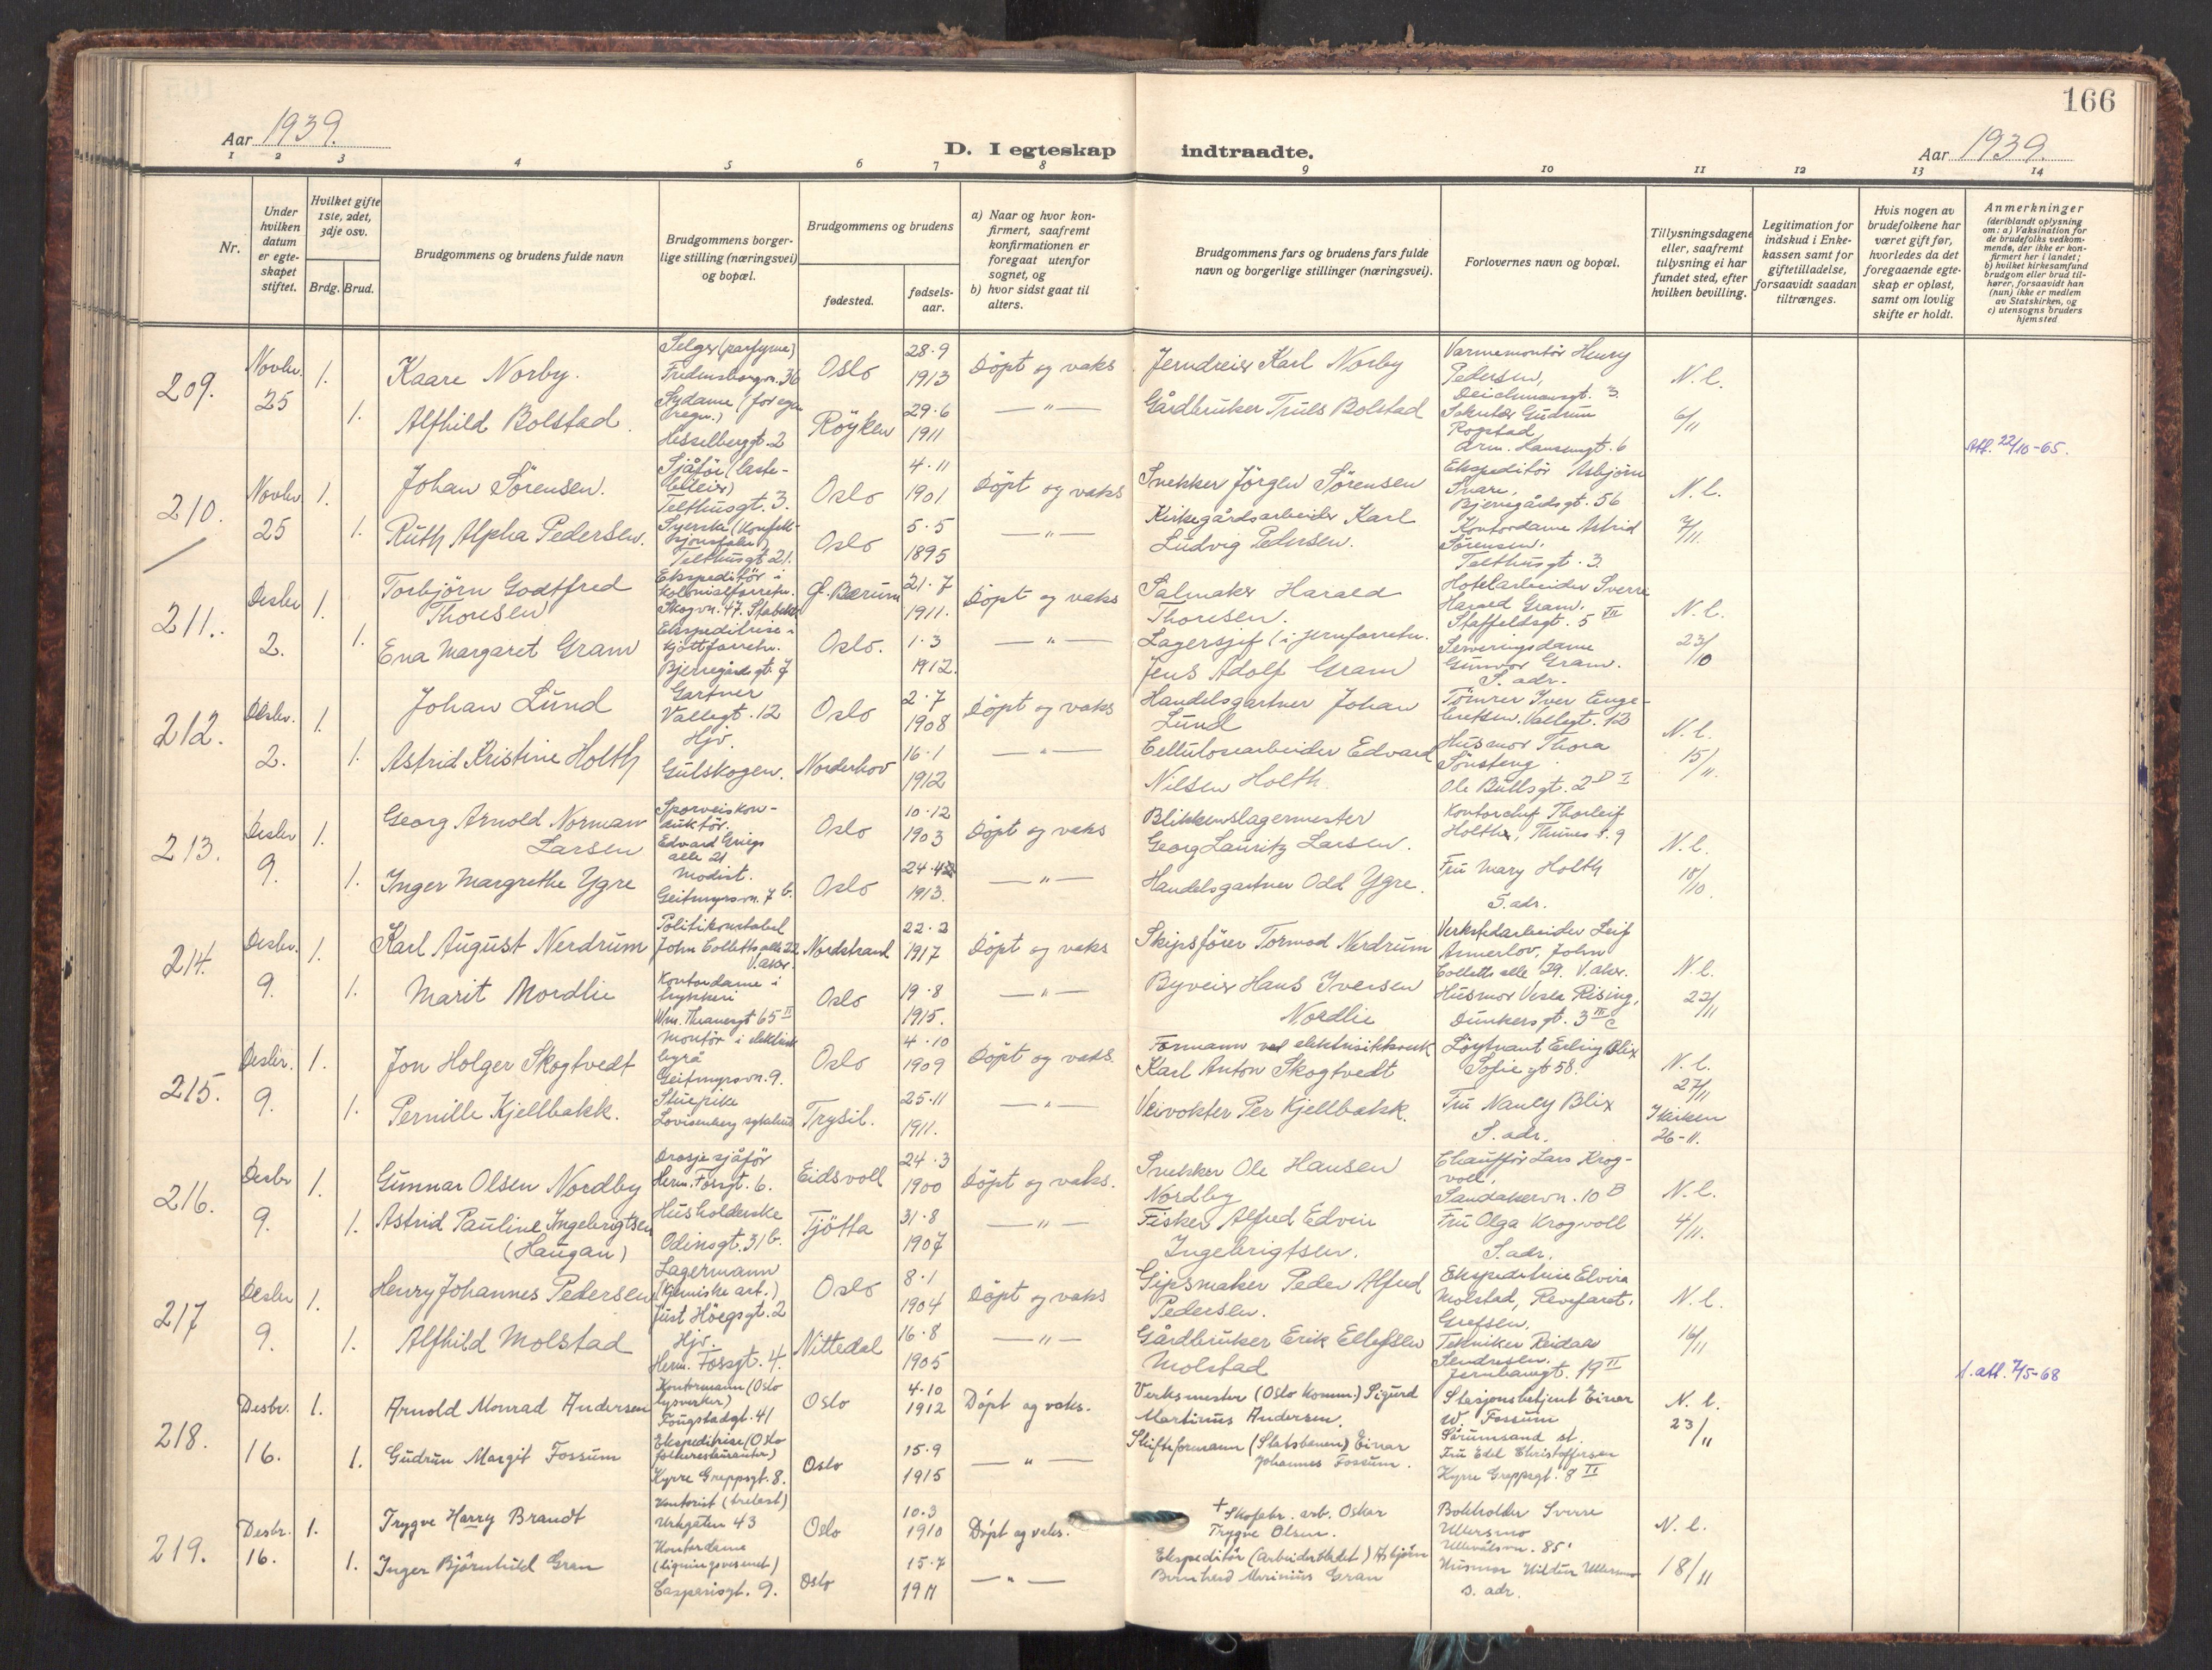 166
Aar 1939.
D. I egteskap indtraadte.
Aar 1939.
1 2 3 4 5 6 7 8 9 10 11 12 13 14
Nr.
Under hvilken datum er egte-skapet stiftet.
Hvilket gifte 1ste, 2det, 3dje osv.
Brdg. Brud.
Brudgommens og brudens fulde navn
Brudgommens borger-lige stilling (næringsvei) og bopæl.
Brudgommens og brudens
fødested.
fødsels-aar.
a) Naar og hvor kon-firmert, saafremt konfirmationen er foregaat utenfor sognet, og
b) hvor sidst gaat til alters.
Brudgommens fars og brudens fars fulde navn og borgerlige stillinger (næringsvei).
Forlovernes navn og bopæl.
Tillysningsdagene eller, saafremt tillysning ei har fundet sted, efter hvilken bevilling.
Legitimation for indskud i Enke-kassen samt for giftetilladelse, forsaavidt saadan tiltrænges.
Hvis nogen av brudefolkene har været gift før, hvorledes da det foregaaende egte-skap er opløst, samt om lovlig skifte er holdt.
Anmerkninger
(deriblandt oplysning om: a) Vaksination for de brudefolks vedkom-mende, der ikke er kon-firmert her i landet; b) hvilket kirkesamfund brudgom eller brud til-hører, forsaavidt han (hun) ikke er medlem av Statskirken, og c) utensogns bruders hjemsted
209. Novbr. 25
1. Kaare Norby. Selger (parfyme) Fredensborgvn. 36 Oslo 28.9 1913 Döpt og vaks Jerndreier Karl Norby Varmemontör Henry Pedersen, Deichmansgt. 3. N.l.
1. Alfhild Bolstad. Sydame (for egen regn.) Hesselberggt. 2 Röyken 29.6 1911 — " — Gårdbruker Truls Bolstad Sekretær Gudrun Rogstad Arm. Hansensgt. 6 6/11
Att. 22/10-65.
210. Novbr 25
1. Johan Sörensen. Sjåför (laste-bileier) Telthusgt. 3. Oslo 4.11 1901 Döpt og vaks Snekker Jörgen Sörensen Ekspeditör Asbjörn Snare, Bjerregårdsgt. 56 N.l.
1. Ruth Alpha Pedersen. Syerske Telthusgt 21. Oslo 5.5 1895 — " — Kirkegårdsarbeider Karl Ludvig Pedersen. Kontordame Astrid Sörensen. Telthusgt. 3. 7/11.
211. Desbr 2.
1. Torbjörn Godtfred Thoresen Ekspeditör i kolonialforretn. Skogvn. 47. Stabekk Ö. Bærum 21.7 1911. Döpt og vaks Salmaker Harald Thoresen. Hotelarbeider Sverre Harald Gram. Staffeldtsgt. 5 III N.l.
1. Ena Margaret Gram Ekspeditrise i kjöttforretn. Bjerregårdsgt. 7 Oslo. 1.3 1912. — " — Lagersjef (i jernforretn. Jens Adolf Gram Serveringsdame Gunvor Gram. S. adr. 23/10
212. Desbr. 2.
1. Johan Lund Gartner Vallegt. 12 Oslo 2.7 1908 Döpt og vaks Handelsgartner Johan Lund Tömrer Iver Enge-bretsen. Vallegt. 13 N.l.
1. Astrid Kristine Holth Hjv. Gulskogen. Norderhov 16.1 1912 — " — Cellulosearbeider Edvard Nilsen Holth. Husmor Thora Sönsteng. Ole Bullsgt. 2 D I 15/11.
213. Desbr 9.
1. Georg Arnold Norman Larsen Sporveiskon-duktör. Edvard Griegs alle 21 Oslo 10.12 1903 Döpt og vaks Blikkenslagermester Georg Lauritz Larsen. Kontorchef Thorleif Holth, 9 N.l.
1. Inger Margrethe Ygre Modist. Geitmyrsvn. 7 b. Oslo 24. 1913. — " — Handelsgartner Odd Ygre. Fru Mary Holth S. adr. 10/10.
214. Desbr. 9.
1. Karl August Nerdrum Politikonstabel John Colletts alle 22 V. aker. Nordstrand 22.2 1917 Döpt og vaks Skipsförer Tormod Nerdrum Verkstedarbeider Leif Annerlov, John Colletts alle 29. V. aker. N.l.
1. Marit Nordlie Kontordame i trykkeri Wm. Thranesgt 65 II Oslo 19.8 1915. — " — Byveier Hans Iversen Nordlie Husmor Vesla Rising, Dunkersgt. 3 III c 22/11
215. Desbr. 9.
1. Jon Holger Skogtvedt Montör i elektrisk byrå Geitmyrsvn. 9. Oslo 4.10 1909 Döpt og vaks. Formann ved elektrisitetsverk Karl Anton Skogtvedt Löytnant Erling Blix Sofiegt 58. N.l. 27/11
1. Pernille Kjellbakk. Stuepike Lovisenberg sykehus Trysil. 25.11 1911. — " — Veivokter Per Kjellbakk. Fru Nancy Blix S. adr. I kirken 26-11.
216. Desbr 9.
1. Gunnar Olsen Nordby Drosjesjåför Herm. Fossgt. 6. Eidsvoll 24.3 1900 Döpt og vaks. Snekker Ole Hansen Nordby Chaufför Lars Krog-voll, Sandakervn. 10 B N.l.
1. Astrid Pauline Ingebrigtsen (Haugan) Husholderske Odinsgt. 31 b. Tjötta 31.8 1907 — " — Fisker Alfred Edvin Ingebrigtsen. Fru Olga Krogvoll S. adr. 4/11.
217 Desbr 9.
1. Henry Johannes Pedersen Lagermann (kjemiske art.) Just Höegsgt. 2 Oslo 8.1 1904 Döpt og vaks Gipsmaker Peder Alfred Pedersen. Ekspeditrise Elvira Molstad, Revefaret, Grefsen. N.l.
1. Alfhild Molstad Hjv. Herm. Fossgt. 4. Nittedal 16.8 1905 — " — Gårdbruker Erik Ellefsen Molstad Tekniker Reidar Sendresen. Jernbanegt. 19 II 16/11
1. att. 7/5-68
218. Desbr. 16.
1. Arnold Monrad Andersen Kontormann (Oslo lysverker) Fougstadgt. 41 Oslo 4.10 1912 Döpt og vaks. Verksmester (Oslo komm.) Sigurd Martinus Andersen. Stasjonsbetjent Einar W. Fossum Sörumsand st. N.l.
1. Gudrun Margit Fossum Ekspeditrise (Oslo folkerestauranter) Kyrre Greppsgt. 8. Oslo 15.9 1915 — " — Skifteformann (Statsbanen) Einar Johannes Fossum. Fru Edel Christoffersen Kyrre Greppsgt. 8 II 23/11
219. Desbr. 16.
1. Trygve Harry Brandt Kontorist (trelast) Urtegaten 43 Oslo 10.3 1910 Döpt og vaks. + Skofabr. arb. Oskar Trygve Olsen. Bokholder Sverre Ullersmo Ullevålsvn. 85 N.l.
1. Inger Björnhild Gran Kontordame (ligningsvesenet) Casparisgt. 9. Oslo 15.7 1911 — " — Ekspeditör (Arbeiderbladet) Asbjörn Bernhard Marinius Gran Husmor Hildur Ullersmo S. adr. 18/11